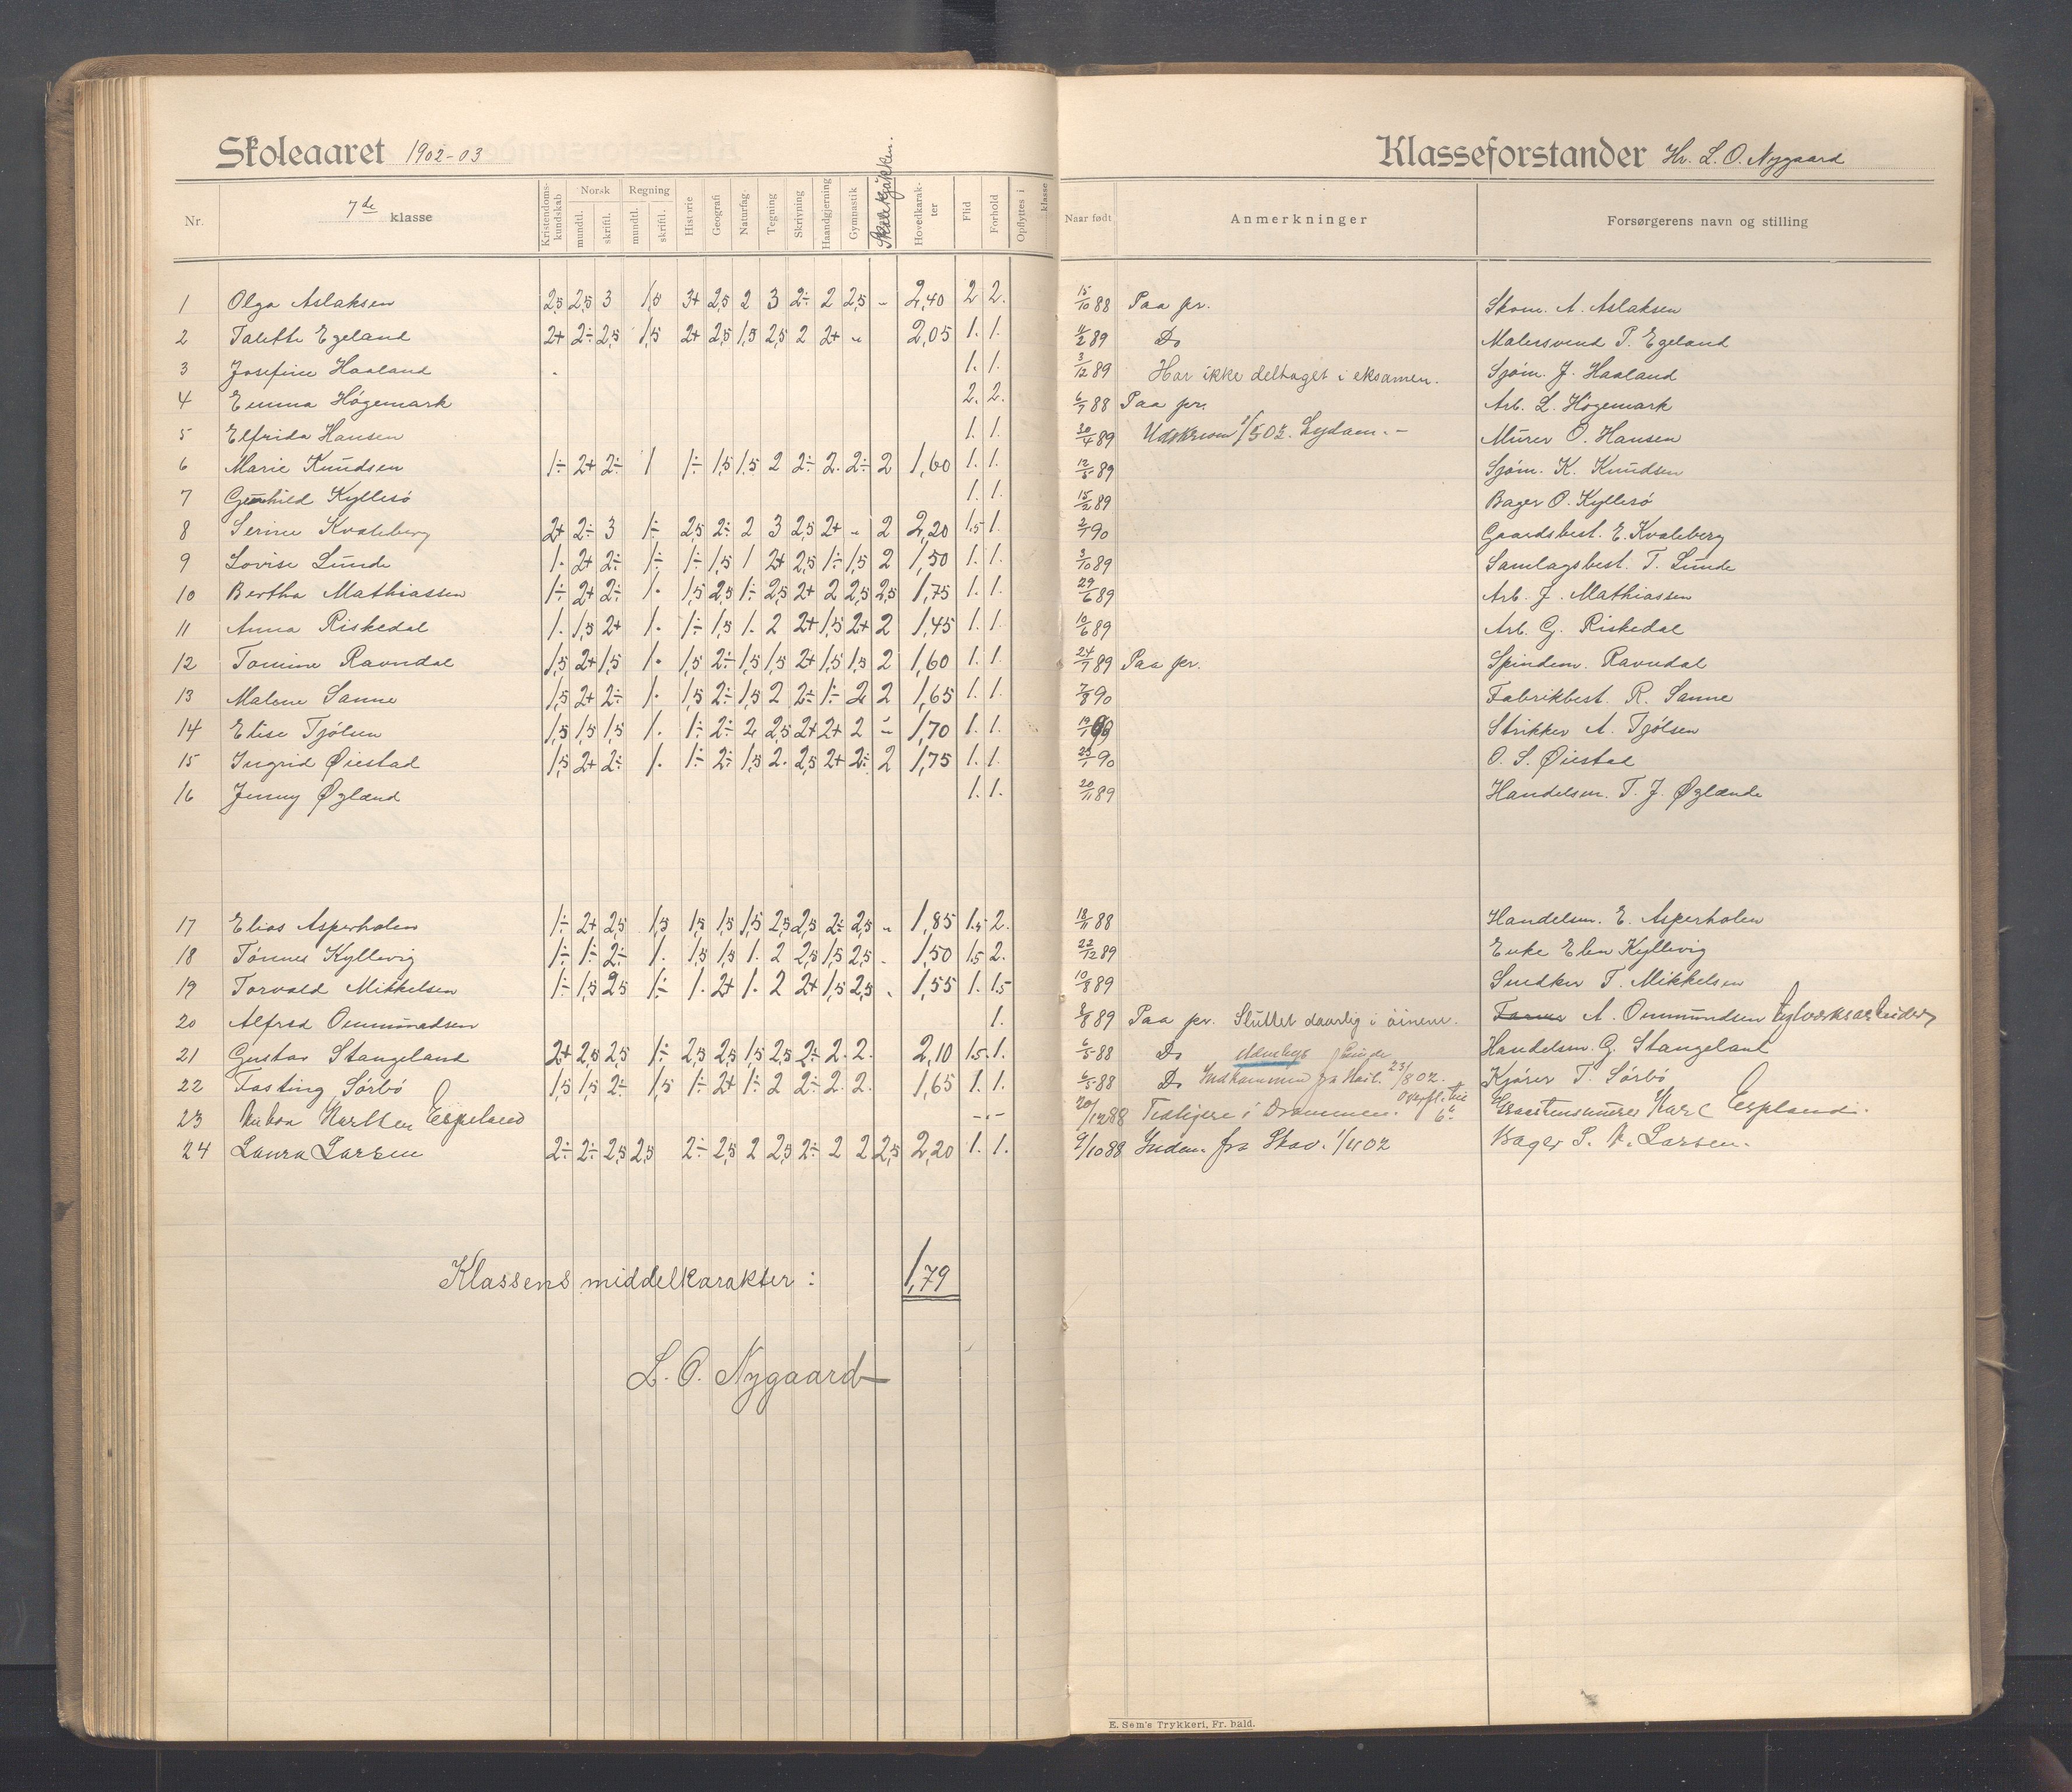 Skoleaaret 1902-03
Klasseforstander Hr. L. O. Nygaard
Nr. 7de klasse Kristendoms-kundskab Norsk mundtl. skriftl. Regning mundtl. skriftl. Historie Geografi Naturfag. Tegning Skrivning Haandgjerning Gymnastik Skolekjøkken. Hovedkarak-ter Flid Forhold Opflyttes i klasse Naar født Anmerkninger Forsørgerens navn og stilling
1 Olga Aslaksen 2,5 2,5 3 1,5 3+ 2,5 2 3 2÷ 2 2,5 „ 2,40 2 2. 15/10 88 Paa pr. Skom. A. Aslaksen
2 Talette Egeland 2+ 2÷ 2,5 1,5 2+ 2,5 1,5 2,5 2 2+ „ 2,05 1. 1. 4/2 89 Do Malersvend P. Egeland
3 Josefine Haaland 1. 1. 3/12 89 Har ikke deltaget i eksamen. Sjøm. J. Haaland
4 Emma Høgemark 2. 2. 6/7 88 Paa pr. Arb. L. Høgemark
5 Elfrida Hansen 1. 1. 30/4 89 Murer O. Hansen
6 Marie Knudsen 1÷ 2+ 2÷ 1 1÷ 1,5 1.5 2 2÷ 2. 2÷ 2 1,60 1. 1. 12/5 89 Sjøm. K. Knudsen
7 Gunhild Kyllesø 1. 1. 15/2 89 Bager O. Kyllesø
8 Serine Kvaleberg 2+ 2÷ 3 1÷ 2,5 2÷ 2 3 2,5 2+ „ 2 2,20 1.5 1. 2/1 90 Gaardsbest. E. Kvaleberg
9 Lovise Lunde 1. 2+ 2÷ 1÷ 1÷ 1,5 1 2+ 2,5 1÷ 1,5 2 1,50 1. 1. 3/10 89 Samlagsbest. T. Lunde
10 Bertha Mathiassen 1÷ 2+ 2÷ 1. 1,5 2,5 1÷ 2,5 2+ 2 2,5 2,5 1,75 1. 1. 29/6 89 Arb. J. Mathiassen
11 Anna Riskedal 1. 1,5 2+ 1. 1÷ 1,5 1. 2 2+ 1,5 2+ 2 1,45 1. 1. 10/6 89 Arb. G. Riskedal
12 Tomine Ravndal 1,5 2+ 1,5 1. 1,5 2÷ 1,5 1,5 2+ 1,5 1,5 2 1,60 1. 1. 24/7 89 Paa pr. Spindem. Ravndal
13 Malene Sanne 1,5 2+ 2÷ 1. 1,5 2÷ 1,5 2 2÷ 1÷ 2 2 1,65 1. 1. 7/8 90 Fabrikbest. R. Sanne
14 Elise Tjølsen 1,5 1,5 1,5 1. 1÷ 2÷ 2 2,5 2+ 2+ 2 „ 1,70 1. 1. 19/1 Strikker A. Tjølsen
15 Ingrid Øiestad 1,5 2+ 2÷ 1. 1÷ 2÷ 1,5 2. 2,5 2+ 2÷ 2 1,75 1. 1. 25/1 90 O. S. Øiestad
16 Jenny Øglænd 1. 1. 20/11 89 Handelsm. T. J. Øglænde
17 Elias Asperholen 1÷ 2+ 2,5 1,5 1,5 1,5 1,5 2,5 2,5 2÷ 2,5 „ 1,85 1.5 2. 18/11 88 Handelsm. E. Asperholen
18 Tønnes Kyllevig 1÷ 1÷ 2÷ 1. 1,5 1,5 1. 2 2,5 1,5 2,5 „ 1,50 1.5 2. 22/12 89 Enke Elen Kyllevig
19 Torvald Mikkelsen 1÷ 1,5 2,5 1÷ 1. 2+ 1. 2 2+ 1,5 2,5 „ 1,55 1. 1.5 10/8 89 Snedker T. Mikkelsen
20 Alfred Ommundsen 1. 2/8 89 Paa pr. Sluttet daarlig i øinene. A. Ommundsen
21 Gustav Stangeland 2+ 2,5 2,5 1÷ 2,5 2,5 1,5 2,5 2÷ 2. 2. 2,10 1.5. 1. 6/5 88 Do Handelsm. G. Stangeland
22 Fasting Sørbø 1,5 1,5 2÷ 1,5 1÷ 2+ 1÷ 2 2÷ 2. 2. 1,65 1. 1. 6/5 88 Do Indkommen fra 23/8 02. Kjører T. Sørbø
23 Espeland 20/12 88 Tidligere i Drammen. Karl Espeland.
24 Laura Larsen 2÷ 2÷ 2,5 2,5 2÷ 2,5 2 2,5 2÷ 2 2 2,5 2,20 1. 1. 9/10 88 Indm. fra Stav. 1/4 02 Bager P. A. Larsen.
Klassens middelkarakter: 1,79
L. O. Nygaard
E. Sem's Trykkeri, Fr. hald.